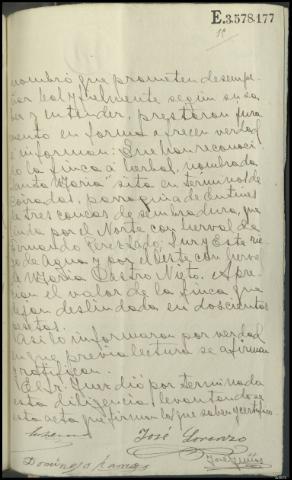 E.3.578.177
nombró que prometen desempe-
ñar leal y fielmente según su sa-
ber y entender, prestaron jura-
mento en forma ofrecen verdad
é informan: Que han reconoci-
do la finca á herbal, nombrada
Santa María sita en términos de
parroquia de Entines
de tres concas de sembradura, que
linda por el Norte con herbal de
Fernando Perez Lado; Sur y Este rie-
go de Agua y por el Oeste con herbal
de María Castro Nieto. Apre-
cian el valor de la finca que
dejan deslindada en doscientas
pesetas.
Así lo informaron por verdad
en que previa lectura se afirman
y ratifican.
El Sr. Juez dió por terminada
esta diligencia, levantándose
esta acta que firman los que saben y certifico
José Lorenzo
Domingo Ramos